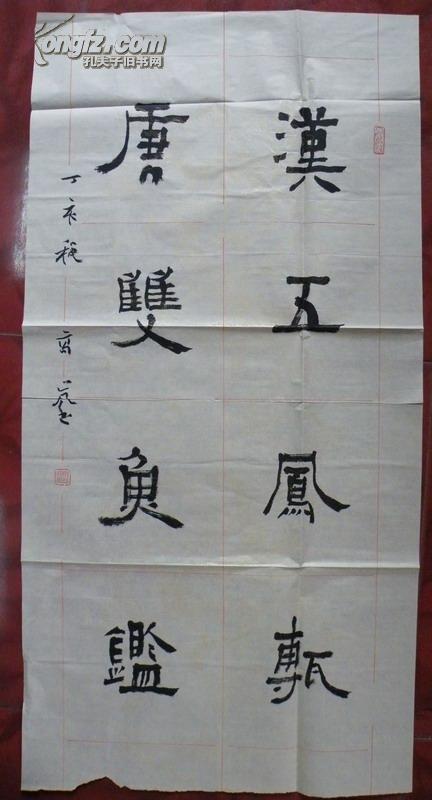 Kongfz.com
孔夫子旧书网
漢五鳳甎
唐雙魚鑑
丁亥秋